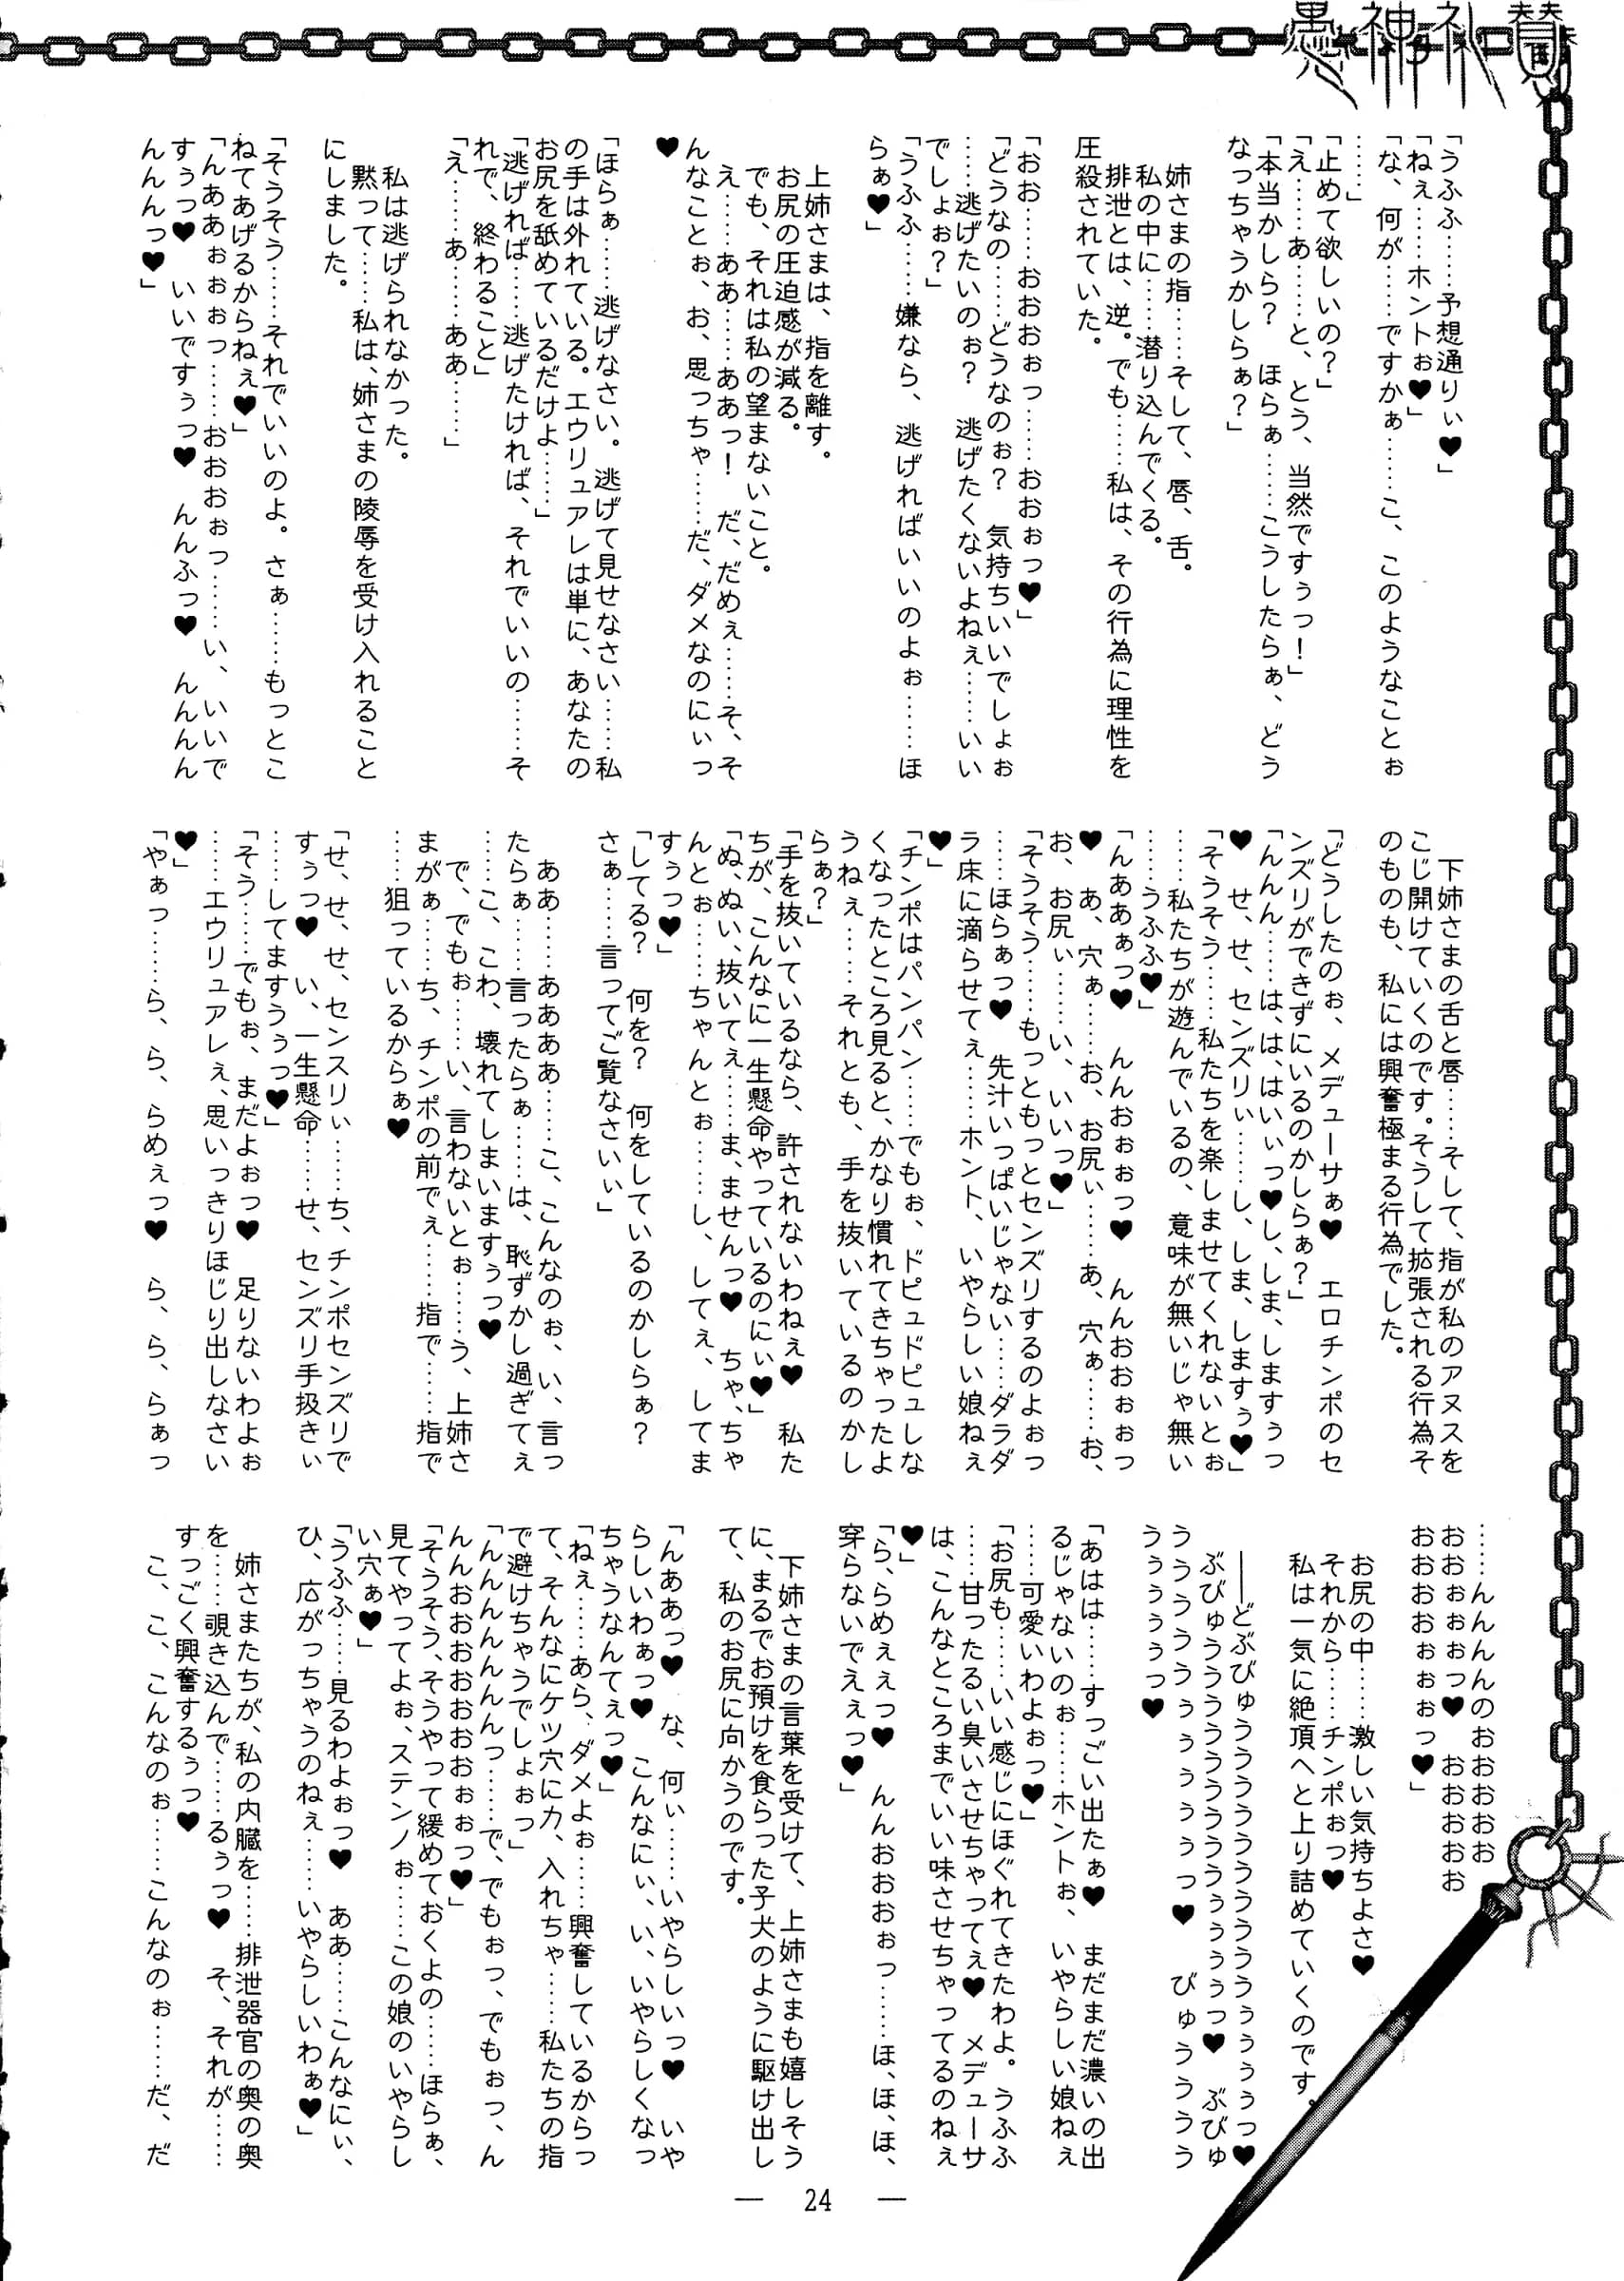 愚神礼賛
「うふふ……予想通りぃ♥」
「ねぇ……ホントぉ♥」
「な、何が……ですかぁ……こ、このようなことぉ
……」
「止めて欲しいの?」
「え……あ……と、とう、当然ですぅっ!」
「本当かしら? ほらぁ……こうしたらぁ、どう
なっちゃうかしらぁ?」
姉さまの指……そして、唇、舌。
私の中に……潜り込んでくる。
排泄とは、逆。でも……私は、その行為に理性を
圧殺されていた。
「おお……おおおぉっ……おぉぉっ♥」
「どうなの……どうなのぉ? 気持ちいいでしょぉ
……逃げたいのぉ? 逃げたくないよねぇ……いい
でしょぉ?」
「うふふ……嫌なら、逃げればいいのよぉ……ほ
らぁ♥」
上姉さまは、指を離す。
お尻の圧迫感が減る。
でも、それは私の望まないこと。
え……ああ……ああっ! だ、だめぇ……そ、そ
んなことぉ、お、思っちゃ……だ、ダメなのにぃっ
♥
「ほらぁ……逃げなさい。逃げて見せなさい……私
の手は外れている。エウリュアレは単に、あなたの
お尻を舐めているだけよ……」
「逃げれば……逃げたければ、それでいいの……そ
れで、終わること」
「え……あ……ああ……」
私は逃げられなかった。
黙って……私は、姉さまの陵辱を受け入れること
にしました。
「そうそう……それでいいのよ。さぁ……もっとこ
ねてあげるからねぇ♥」
「んああぉぉぉっ……おおおぉっ……い、いいで
すぅっ♥ いいですぅっ♥ んんふっ♥ んんんん
んんんっ♥」
下姉さまの舌と唇……そして、指が私のアヌスを
こじ開けていくのです。そうして拡張される行為そ
のものも、私には興奮極まる行為でした。
「どうしたのぉ、メデューサぁ♥ エロチンポのセ
ンズリができずにいるのかしらぁ?」
「んんん……は、は、はいぃっ♥し、しま、しますぅっ
♥ せ、せ、センズリぃ……し、しま、しますぅ♥」
「そうそう……私たちを楽しませてくれないとぉ
……私たちが遊んでいるの、意味が無いじゃ無い
……うふふ♥」
「んああぁっ♥ んんおぉぉっ♥ んんおおぉぉっ
♥ あ、穴ぁ……お、お尻ぃ……あ、穴ぁ……お、
お、お尻ぃ……い、いいっ♥」
「そうそう……もっともっとセンズリするのよぉっ
……ほらぁっ♥ 先汁いっぱいじゃない……ダラダ
ラ床に滴らせてぇ……ホント、いやらしい娘ねぇ
♥」
「チンポはパンパン……でもぉ、ドピュドピュしな
くなったところ見ると、かなり慣れてきちゃったよ
うねぇ……それとも、手を抜いているのかし
らぁ?」
「手を抜いているなら、許されないわねぇ♥ 私た
ちが、こんなに一生懸命やっているのにぃ♥」
「ぬ、ぬい、抜いてぇ……ま、ませんっ♥ ちゃ、ちゃ
んとぉ……ちゃんとぉ……し、してぇ、してま
すぅっ♥」
「してる? 何を? 何をしているのかしらぁ?
さぁ……言ってご覧なさいぃ」
ああ……ああああ……こ、こんなのぉ、い、言っ
たらぁ……言ったらぁ……は、恥ずかし過ぎてぇ
……こ、こわ、壊れてしまいますぅっ♥
で、でもぉ……い、言わないとぉ……う、上姉さ
まがぁ……ち、チンポの前でぇ……指で……指で
……狙っているからぁ♥
「せ、せ、せ、センスリぃ……ち、チンポセンズリで
すぅっ♥ い、一生懸命……せ、センズリ手扱きぃ
……してますうぅっ♥」
「そう……でもぉ、まだよぉっ♥ 足りないわよぉ
……エウリュアレぇ、思いっきりほじり出しなさい
♥」
「やぁっ……ら、ら、らめぇっ♥ ら、ら、らぁっ
……んんんんのおおおおお
おおぉぉぉっ♥ おおおおお
おおおおぉぉぉっ♥」
お尻の中……激しい気持ちよさ♥
それから……チンポぉっ♥
私は一気に絶頂へと上り詰めていくのです。
――どぶびゅうううううううううううぅぅぅぅっ♥
ぶびゅううううううううううぅぅぅぅっ♥ ぶびゅ
うううううぅぅぅぅぅっ♥ びゅうううう
うぅぅぅぅっ♥
「あはは……すっごい出たぁ♥ まだまだ濃いの出
るじゃないのぉ……ホントぉ、いやらしい娘ねぇ
……可愛いわよぉっ♥」
「お尻も……いい感じにほぐれてきたわよ。うふふ
……甘ったるい臭いさせちゃってぇ♥ メデューサ
は、こんなところまでいい味させちゃってるのねぇ
♥」
「ら、らめぇぇっ♥ んんおおおぉっ……ほ、ほ、ほ、
穿らないでえぇっ♥」
下姉さまの言葉を受けて、上姉さまも嬉しそう
に、まるでお預けを食らった子犬のように駆け出し
て、私のお尻に向かうのです。
「んああっ♥ な、何ぃ……いやらしいっ♥ いや
らしいわぁっ♥ こんなにぃ、い、いやらしくなっ
ちゃうなんてぇっ♥」
「ねぇ……あら、ダメよぉ……興奮しているからっ
て、そんなにケツ穴に力、入れちゃ……私たちの指
で避けちゃうでしょぉっ」
「んんんんんんんっ……で、でもぉっ、でもぉっ、ん
んんおおおおおおおおぉぉっ♥」
「そうそう、そうやって緩めておくよの……ほらぁ、
見てやってよぉ、ステンノぉ……この娘のいやらし
い穴ぁ♥」
「うふふ……見るわよぉっ♥ ああ……こんなにぃ、
ひ、広がっちゃうのねぇ……いやらしいわぁ♥」
姉さまたちが、私の内臓を……排泄器官の奥の奥
を……覗き込んで……るぅっ♥ そ、それが……
すっごく興奮するぅっ♥
こ、こ、こんなのぉ……こんなのぉ……だ、だ
― 24 ―